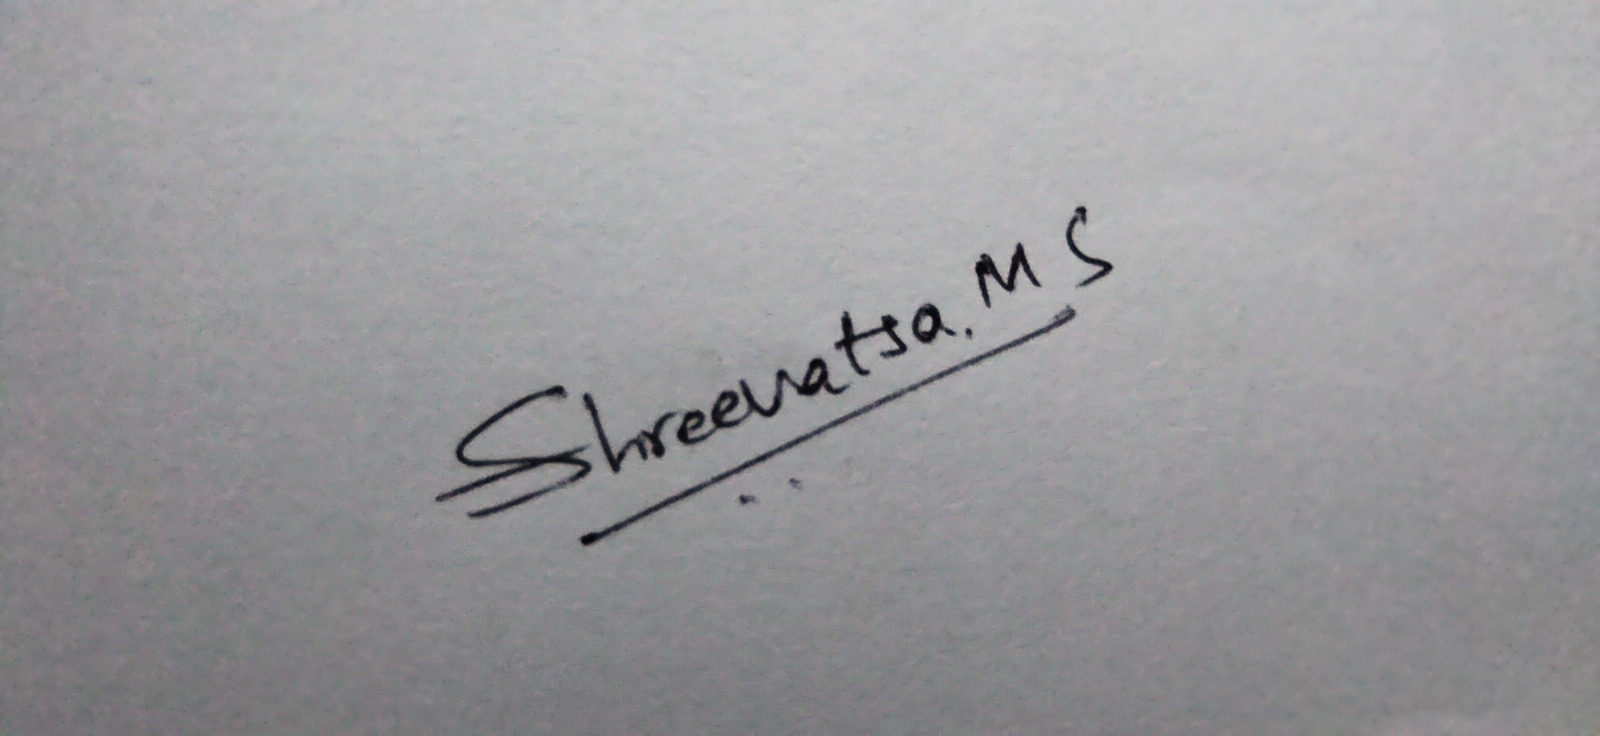 Shreevatsa. M S